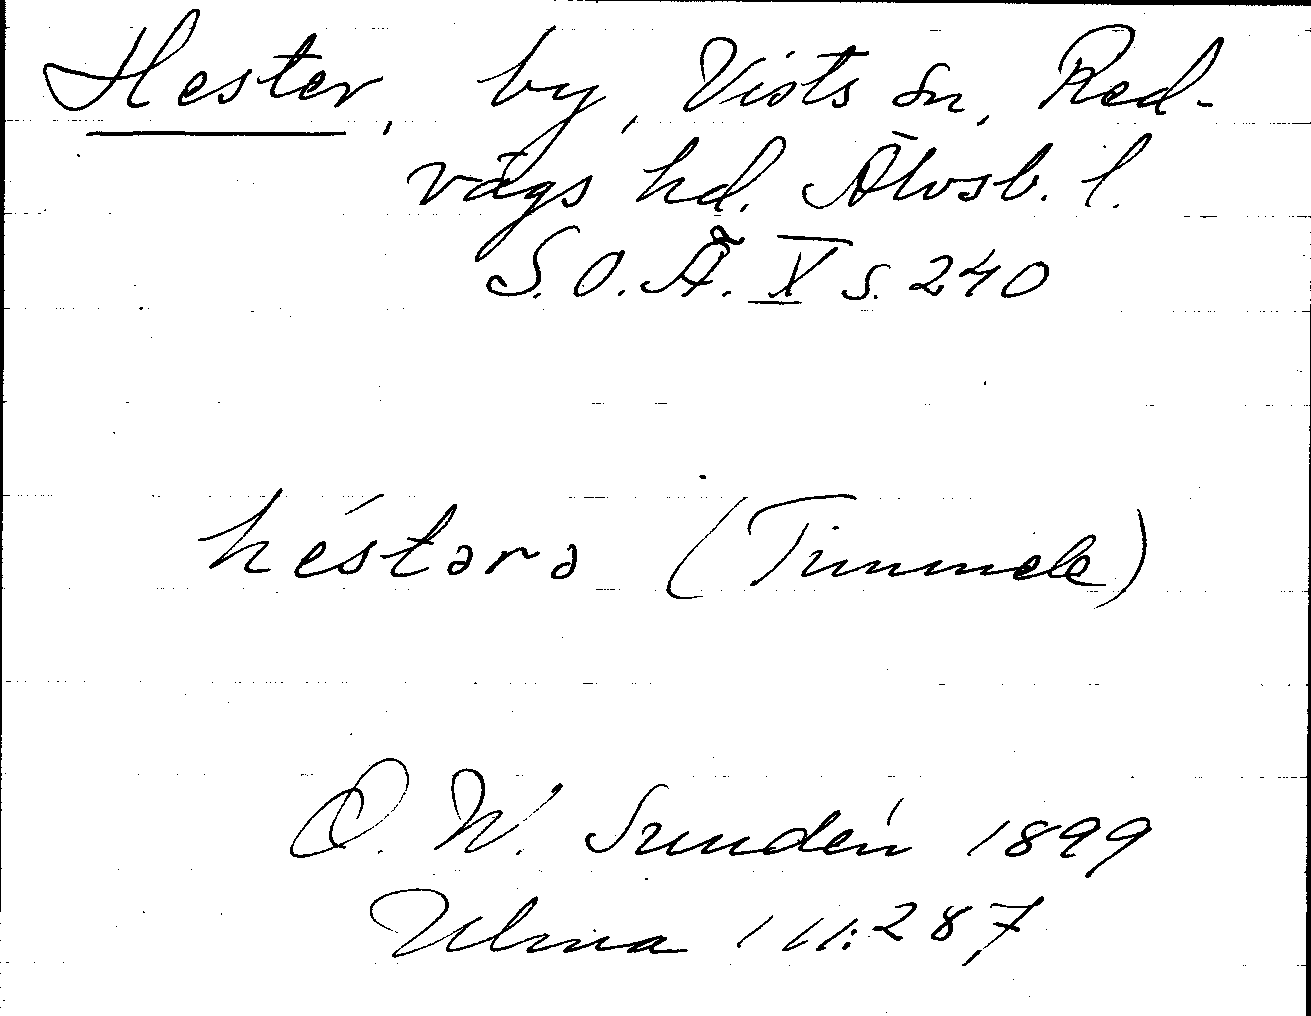 Hester, by, Vists sn, Red-
vägs hd. Älvsb. l.
S. O. Ä. X s. 240
héstərə (Timmele)
O. W. Sundén 1899
Ulma 111:287